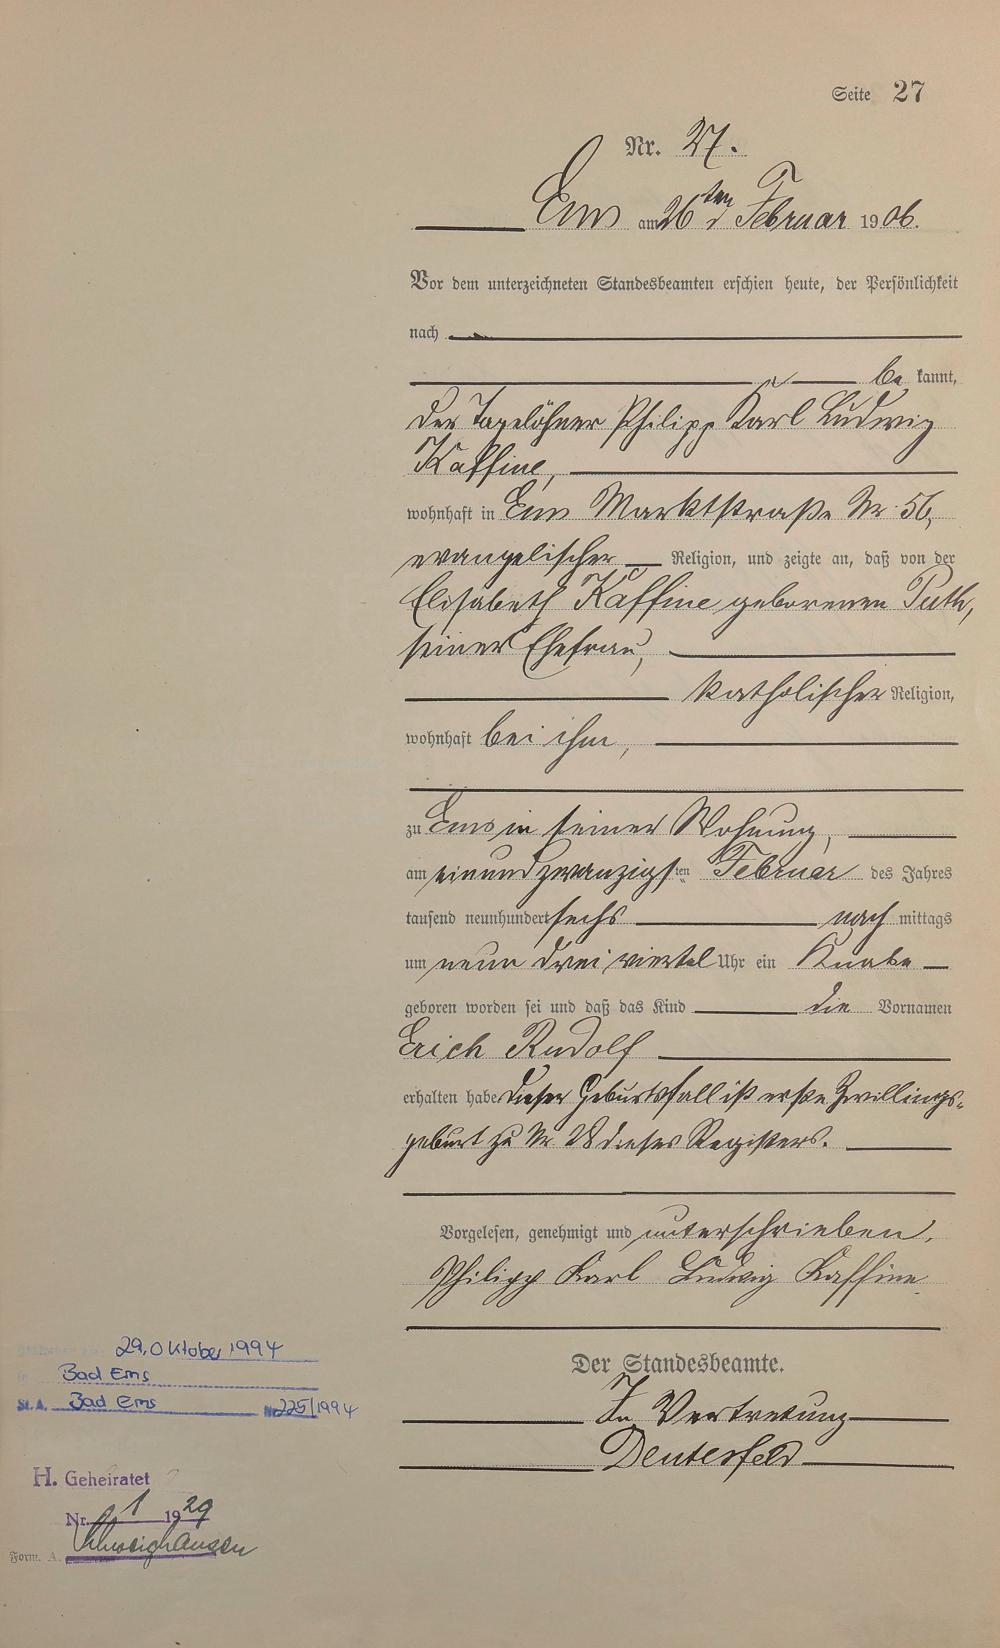 Seite 27
Nr. 27.
Ems am 26ten Februar 1906.
Vor dem unterzeichneten Standesbeamten erschien heute, der Persönlichkeit
nach
be kannt,
der Tagelöhner Philipp Karl Ludwig
Kaffine,
wohnhaft in Ems Marktstraße Nr 56,
evangelischer Religion, und zeigte an, daß von der
Elisabeth Kaffine geborenen Puth,
seiner Ehefrau,
katholischer Religion,
wohnhaft bei ihm,
zu Ems in seiner Wohnung,
am einundzwanzigsten Februar des Jahres
tausend neunhundert sechs nach mittags
um neun drei viertel Uhr ein Knabe
geboren worden sei und daß das Kind die Vornamen
Erich Rudolf
erhalten habe Dieser Geburtsfall ist erste Zwillings-
geburt zu Nr 28 dieses Registers.
Vorgelesen, genehmigt und unterschrieben.
Philipp Karl Ludwig Kaffine
Der Standesbeamte.
In Vertretung
Deutesfeld
29. Oktober 1994
in Bad Ems
St. A. Bad Ems Nr. 225/1994
H. Geheiratet
Nr. 1 1929
Schweighausen
Form. A.